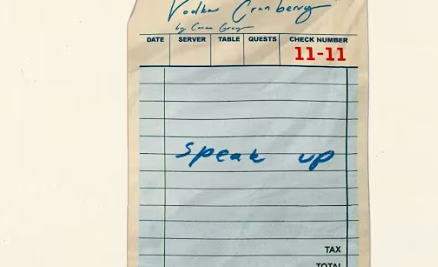 Vodka Cranberry
by Conan Gray
DATE SERVER TABLE GUESTS CHECK NUMBER
11-11
speak up
TAX
TOTAL